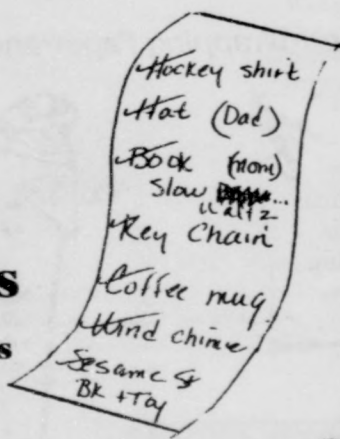 Hockey shirt
Hat (Dad)
Book (Mom)
Slow ...
Waltz
Key Chain
Coffee mug
Wind chime
Sesame St
BK + Toy
s
s